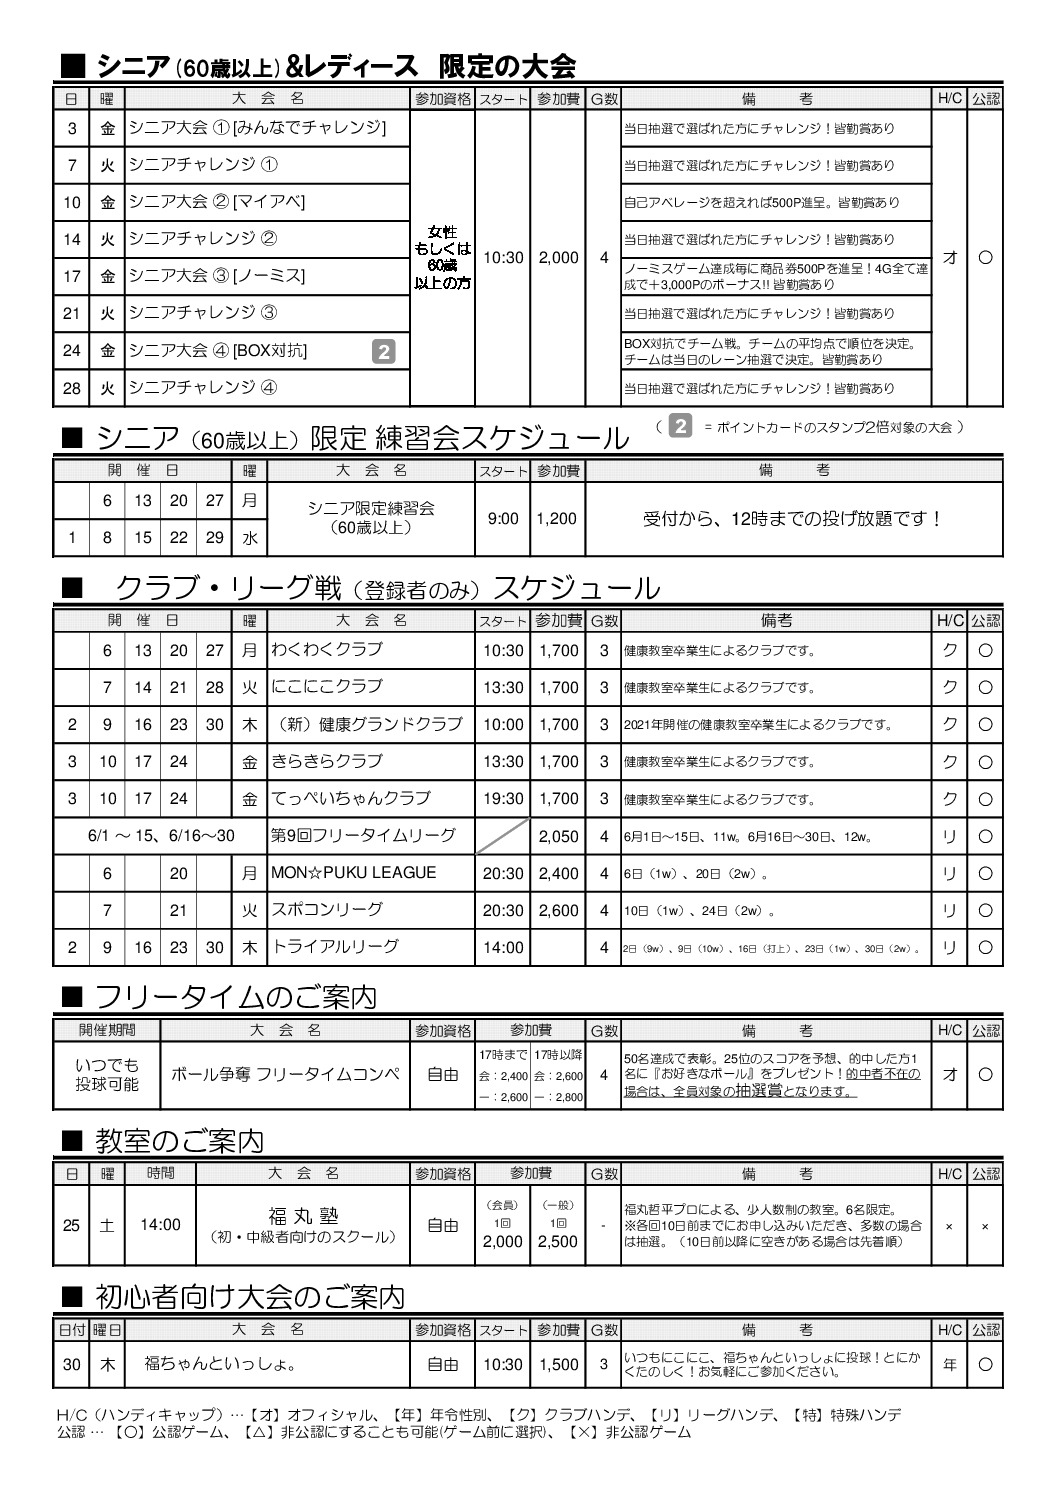 ■ シニア(60歳以上)&レディース 限定の大会
日 曜 大 会 名 参加資格 スタート 参加費 G数 備 考 H/C 公認
3 金 シニア大会 ①[みんなでチャレンジ] 当日抽選で選ばれた方にチャレンジ！皆勤賞あり
7 火 シニアチャレンジ ① 当日抽選で選ばれた方にチャレンジ！皆勤賞あり
10 金 シニア大会 ②[マイアベ] 自己アベレージを超えれば500P進呈。皆勤賞あり
14 火 シニアチャレンジ ② 当日抽選で選ばれた方にチャレンジ！皆勤賞あり
女性
もしくは
60歳
以上の方
10:30 2,000 4 オ 〇
17 金 シニア大会 ③[ノーミス] ノーミスゲーム達成毎に商品券500Pを進呈！4G全て達
成で＋3,000Pのボーナス!! 皆勤賞あり
21 火 シニアチャレンジ ③ 当日抽選で選ばれた方にチャレンジ！皆勤賞あり
24 金 シニア大会 ④[BOX対抗] 2 BOX対抗でチーム戦。チームの平均点で順位を決定。
チームは当日のレーン抽選で決定。皆勤賞あり
28 火 シニアチャレンジ ④ 当日抽選で選ばれた方にチャレンジ！皆勤賞あり
（ 2 = ポイントカードのスタンプ2倍対象の大会 ）
■ シニア（60歳以上）限定 練習会スケジュール
開 催 日 曜 大 会 名 スタート 参加費 備 考
6 13 20 27 月
シニア限定練習会
（60歳以上）
9:00 1,200 受付から、12時までの投げ放題です！
1 8 15 22 29 水
■ クラブ・リーグ戦（登録者のみ）スケジュール
開 催 日 曜 大 会 名 スタート 参加費 G数 備考 H/C 公認
6 13 20 27 月 わくわくクラブ 10:30 1,700 3 健康教室卒業生によるクラブです。 ク 〇
7 14 21 28 火 にこにこクラブ 13:30 1,700 3 健康教室卒業生によるクラブです。 ク 〇
2 9 16 23 30 木 （新）健康グランドクラブ 10:00 1,700 3 2021年開催の健康教室卒業生によるクラブです。 ク 〇
3 10 17 24 金 きらきらクラブ 13:30 1,700 3 健康教室卒業生によるクラブです。 ク 〇
3 10 17 24 金 てっぺいちゃんクラブ 19:30 1,700 3 健康教室卒業生によるクラブです。 ク 〇
6/1 ～ 15、6/16～30 第9回フリータイムリーグ 2,050 4 6月1日～15日、11w。6月16日～30日、12w。 リ 〇
6 20 月 MON☆PUKU LEAGUE 20:30 2,400 4 6日（1w）、20日（2w）。 リ 〇
7 21 火 スポコンリーグ 20:30 2,600 4 10日（1w）、24日（2w）。 リ 〇
2 9 16 23 30 木 トライアルリーグ 14:00 4 2日（9w）、9日（10w）、16日（打上）、23日（1w）、30日（2w）。 リ 〇
■ フリータイムのご案内
開催期間 大 会 名 参加資格 参加費 G数 備 考 H/C 公認
いつでも
投球可能
ボール争奪 フリータイムコンペ 自由
17時まで 17時以降
会：2,400 会：2,600
一：2,600 一：2,800
4
50名達成で表彰。25位のスコアを予想、的中した方1
名に『お好きなボール』をプレゼント！的中者不在の
場合は、全員対象の抽選賞となります。
オ 〇
■ 教室のご案内
日 曜 時間 大 会 名 参加資格 参加費 G数 備 考 H/C 公認
25 土 14:00
福 丸 塾
（初・中級者向けのスクール）
自由
（会員） （一般）
1回 1回
2,000 2,500
-
福丸哲平プロによる、少人数制の教室。6名限定。
※各回10日前までにお申し込みいただき、多数の場合
は抽選。（10日前以降に空きがある場合は先着順）
× ×
■ 初心者向け大会のご案内
日付 曜日 大 会 名 参加資格 スタート 参加費 G数 備 考 H/C 公認
30 木 福ちゃんといっしょ。 自由 10:30 1,500 3 いつもにこにこ、福ちゃんといっしょに投球！とにか
くたのしく！お気軽にご参加ください。
年 〇
H/C（ハンディキャップ）…【オ】オフィシャル、【年】年令性別、【ク】クラブハンデ、【リ】リーグハンデ、【特】特殊ハンデ
公認 … 【〇】公認ゲーム、【△】非公認にすることも可能(ゲーム前に選択)、【×】非公認ゲーム